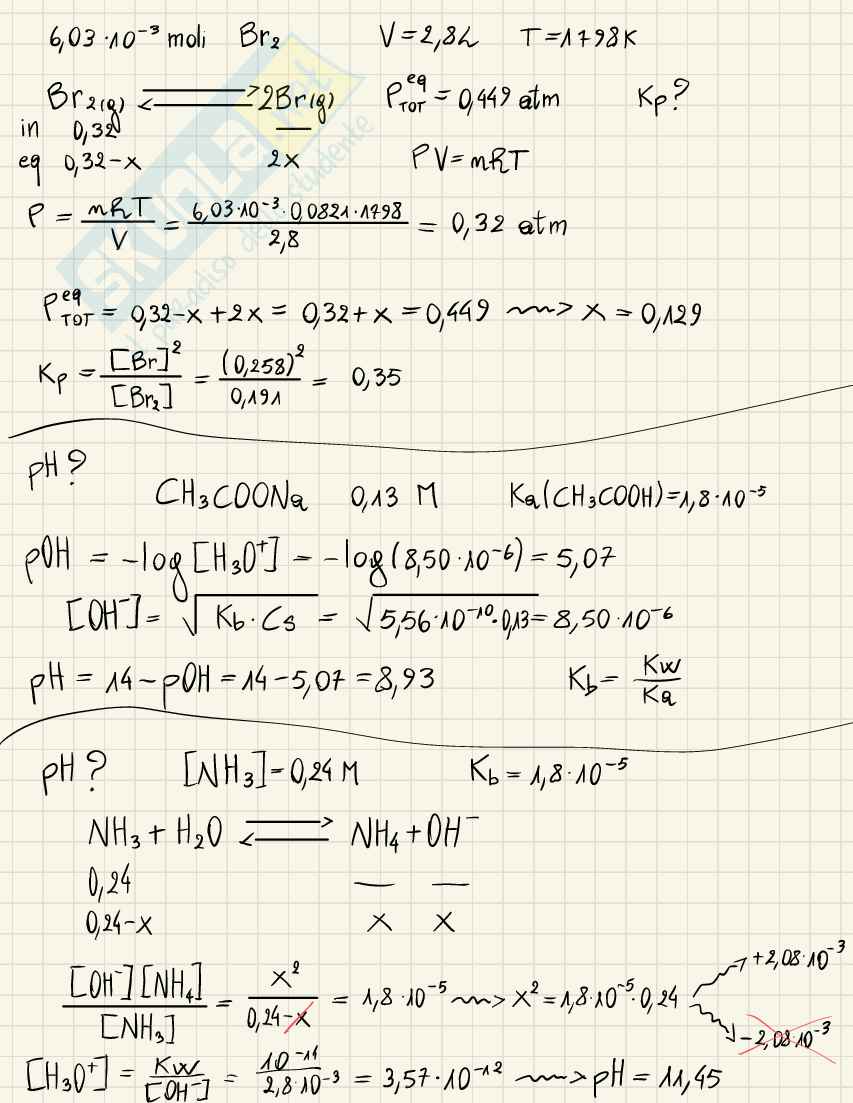 6,03·10⁻³ moli Br₂ V=2,8L T=1798K
Br₂(g) ⇌ 2Br(g) P_TOT^eq = 0,449 atm Kp?
in 0,32 —
eq 0,32-x 2x PV=nRT
P = nRT/V = 6,03·10⁻³·0,0821·1798/2,8 = 0,32 atm
P_TOT^eq = 0,32-x+2x = 0,32+x = 0,449 ⇝ x = 0,129
Kp = [Br]²/[Br₂] = (0,258)²/0,191 = 0,35
pH?
CH₃COONa 0,13 M Ka(CH₃COOH)=1,8·10⁻⁵
pOH = -log[H₃O⁺] = -log(8,50·10⁻⁶) = 5,07
[OH⁻] = √(Kb·Cs) = √(5,56·10⁻¹⁰·0,13) = 8,50·10⁻⁶
pH = 14-pOH = 14-5,07 = 8,93 Kb = Kw/Ka
pH? [NH₃]=0,24 M Kb = 1,8·10⁻⁵
NH₃ + H₂O ⇌ NH₄ + OH⁻
0,24 — —
0,24-x x x
[OH⁻][NH₄]/[NH₃] = x²/(0,24-x) = 1,8·10⁻⁵ ⇝ x² = 1,8·10⁻⁵·0,24 +2,08·10⁻³
-2,08·10⁻³
[H₃O⁺] = Kw/[OH⁻] = 10⁻¹⁴/2,8·10⁻³ = 3,57·10⁻¹² ⇝ pH = 11,45
SKUOLA.net
il paradiso dello studente